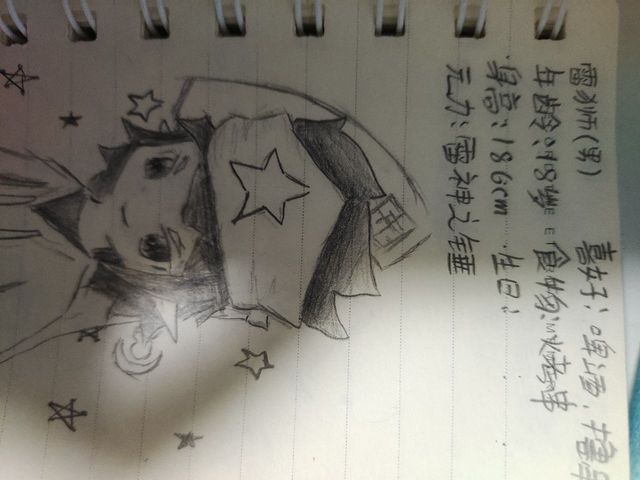 雷狮(男) 喜好:啤酒,擂
年龄:18岁 食物:烧烤串
身高:186cm 生日:
元力:雷神之锤